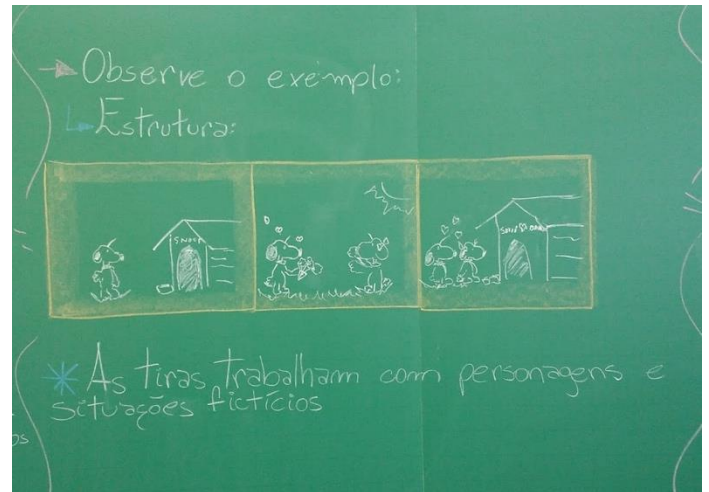 Observe o exemplo:
Estrutura:
SNOOPY
As tiras trabalham com personagens e
situações fictícios
os